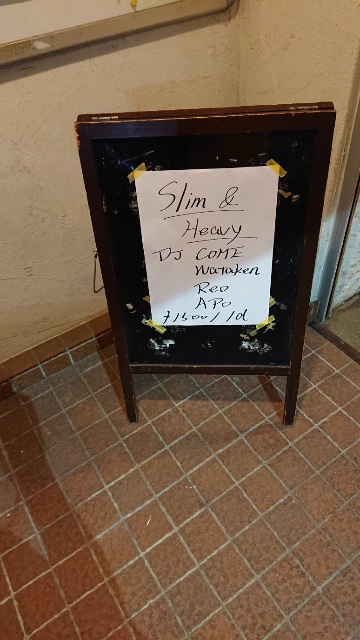 Slim &
Heavy
DJ COME
Wataken
Reo
APo
¥1500/1d